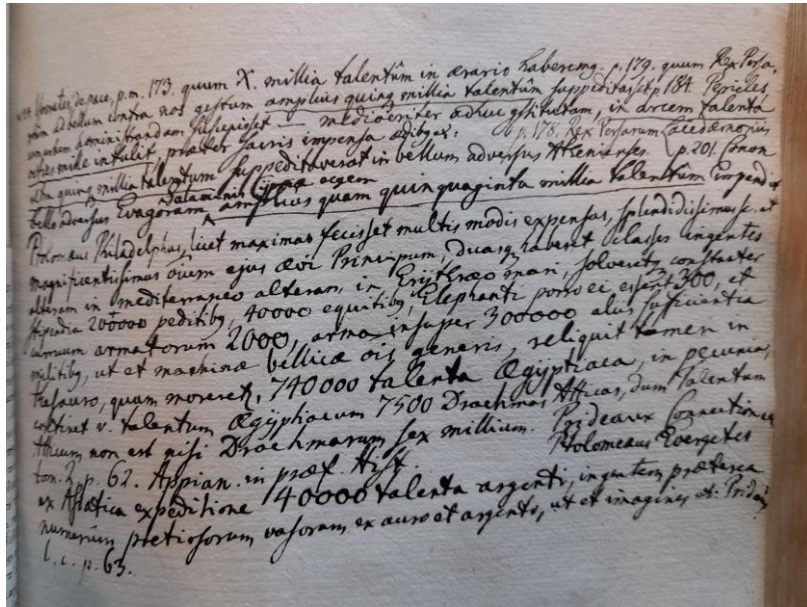 Isocrates, de pace, p.m. 173. quum X. millia talentûm in ærario haberemq. p. 179. quum Rex Persa,
rum ad bellum contra nos gestum amplius quinq millia talentûm suppeditasset p 184. Pericles,
administrandam suscepisset — mediocriter adhuc institutam, in arcem talenta
octies mille intulit, præter sacris impensa p. 178. Rex Persarum Lacedæmoniis
quinq millia talentum suppeditaverat in bellum adversus Athenienses. p. 201. Conon
bello adversus Evagoram, Salaminis Cypriæ regem amplius quam quinquaginta millia talentûm impendit
Ptolomæus Philadelphus, licet maximas fecisset multis modis expensas, splendidissimus sc. et
magnificentissimus oium ejus ævi Principum, duasq haberet classes ingentes
alteram in mediterraneo alteram, in Erythræo mari, solveretq constanter
stipendia 200000 peditibq, 40000 equitibq, Elephanti porro ei essent 300, et
curruum armatorum 2000, arma insuper 300000 aliis sufficientia
militibq, ut et machinæ bellicæ ois generis, reliquit tamen in
thesauro, quum moreretq, 740000 talenta Ægyptiaca, in pecunia,
continet v. talentum Ægyptiacum 7500 Drachmas Atticas, dum Talentum
Atticum non est nisi Drachmarum sex millium. Prideaux Connection
tom. 2. p. 62. Appian. in præf. Hist. Ptolomæus Evergetes
ex Asiatica expeditione 40000 talenta argenti, ingentem præterea
numerum pretiosorum vasorum ex auro et argento, ut et imagines etc. Prideaux
l. c. p. 63.